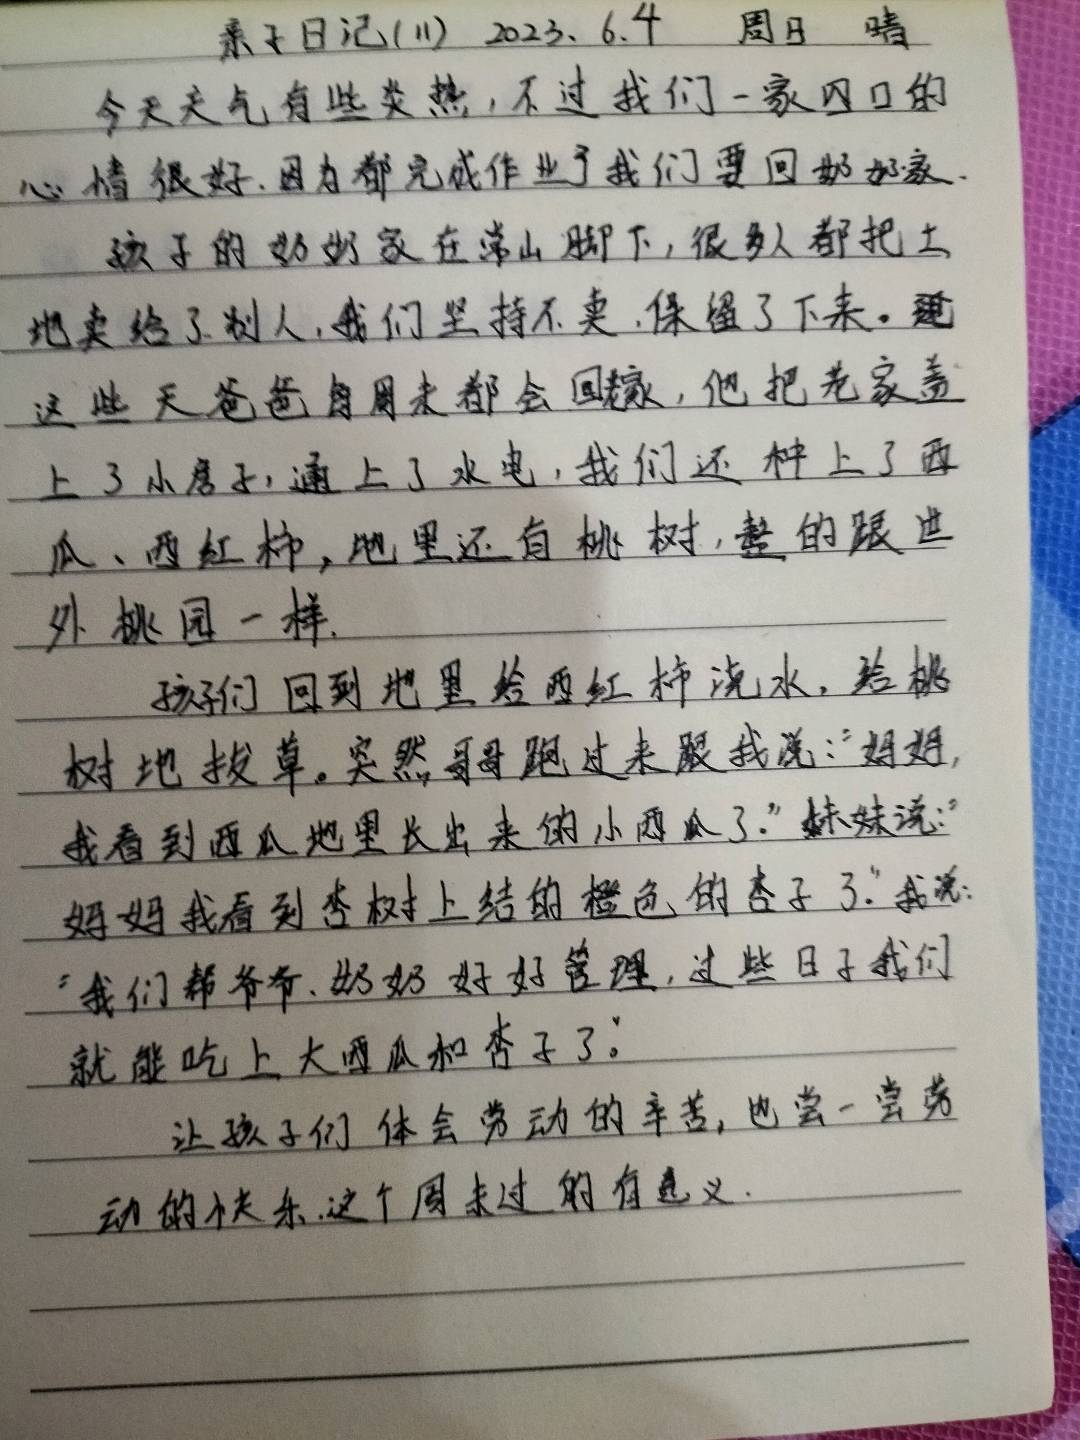 亲子日记(11) 2023.6.4 周日 晴
今天天气有些炎热，不过我们一家四口的
心情很好.因为都完成作业了我们要回奶奶家.
孩子的奶奶家在常山脚下，很多人都把土
地卖给了别人,我们坚持不卖,保留了下来。
这些天爸爸每周末都会回老家，他把老家盖
上了小房子，通上了水电，我们还种上了西
瓜、西红柿，地里还有桃树，整的跟世
外桃园一样.
孩子们回到地里给西红柿浇水，给桃
树地拔草。突然哥哥跑过来跟我说：“妈妈，
我看到西瓜地里长出来的小西瓜了.”妹妹说：“
妈妈我看到杏树上结的橙色的杏子了.”我说：
“我们帮爷爷、奶奶好好管理，过些日子我们
就能吃上大西瓜和杏子了。”
让孩子们体会劳动的辛苦，也尝一尝劳
动的快乐.这个周末过的有意义.